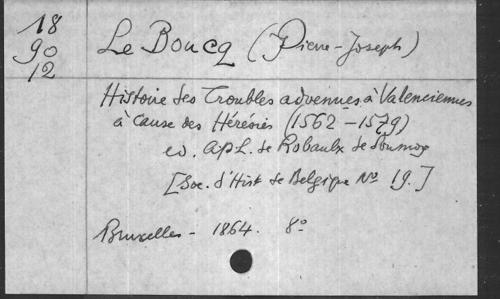 18
90
12
Le Boucq (Pierre-Joseph)
Histoire des Troubles advenues à Valenciennes
à cause des Hérésies (1562-1579)
ed. A.P.L. de Robaulx de Soumoy
[Soc. d'Hist de Belgique No 19.]
Bruxelles - 1864. 8o